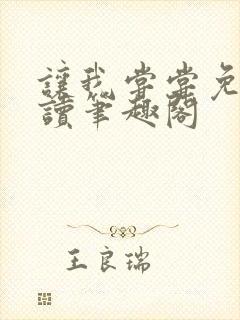 讓我嘗嘗免
讀筆趣閣
王良瑞